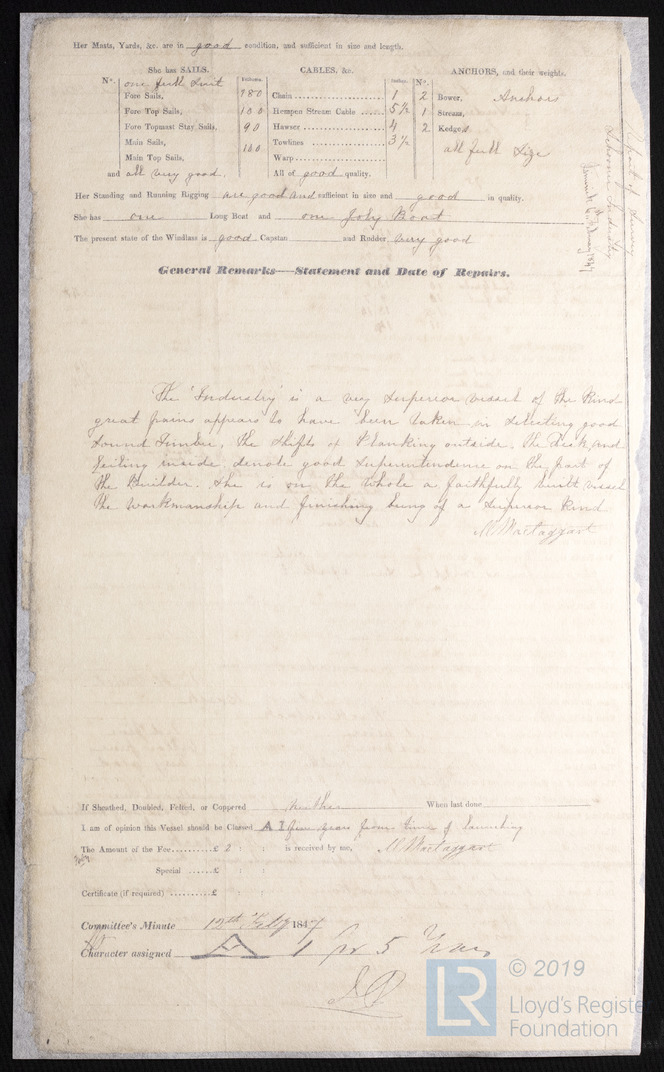 Her Masts, Yards, &c. are in good condition, and sufficient in size and length.
She has SAILS.
CABLES, &c.
ANCHORS, and their weights.
No. one full Suit
Fathoms.
Inches.
No.
Fore Sails,
Chain 1
2 Bower, Anchors
Fore Top Sails, 100
Hempen Stream Cable 5½
1 Stream,
Fore Topmast Stay Sails, 90
Hawser 4
2 Kedges
Main Sails, 100
Towlines 3½
all full Size
Main Top Sails,
Warp
and all very good.
All of good quality.
Her Standing and Running Rigging are good and sufficient in size and good in quality.
She has one Long Boat and one Joly Boat
The present state of the Windlass is good Capstan and Rudder very good
General Remarks—Statement and Date of Repairs.
The "Industry" is a very superior vessel of the kind
great pains appears to have been taken in selecting good
sound Timber, the shifts of Planking outside, the Deck and
Ceiling inside, denote good superintendence on the part of
the Builder. She is on the whole a faithfully built vessel
the workmanship and finishing being of a superior kind
M Mactaggart
If Sheathed, Doubled, Felted, or Coppered neither When last done
I am of opinion this Vessel should be Classed A 1 five years from time of launching
The Amount of the Fee £ 2 : : is received by me, M Mactaggart
Special £ : :
Certificate (if required) £ : :
Committee's Minute 12th Feby 1847
Character assigned A 1 for 5 Years
© 2019
LR
Lloyd's Register
Foundation